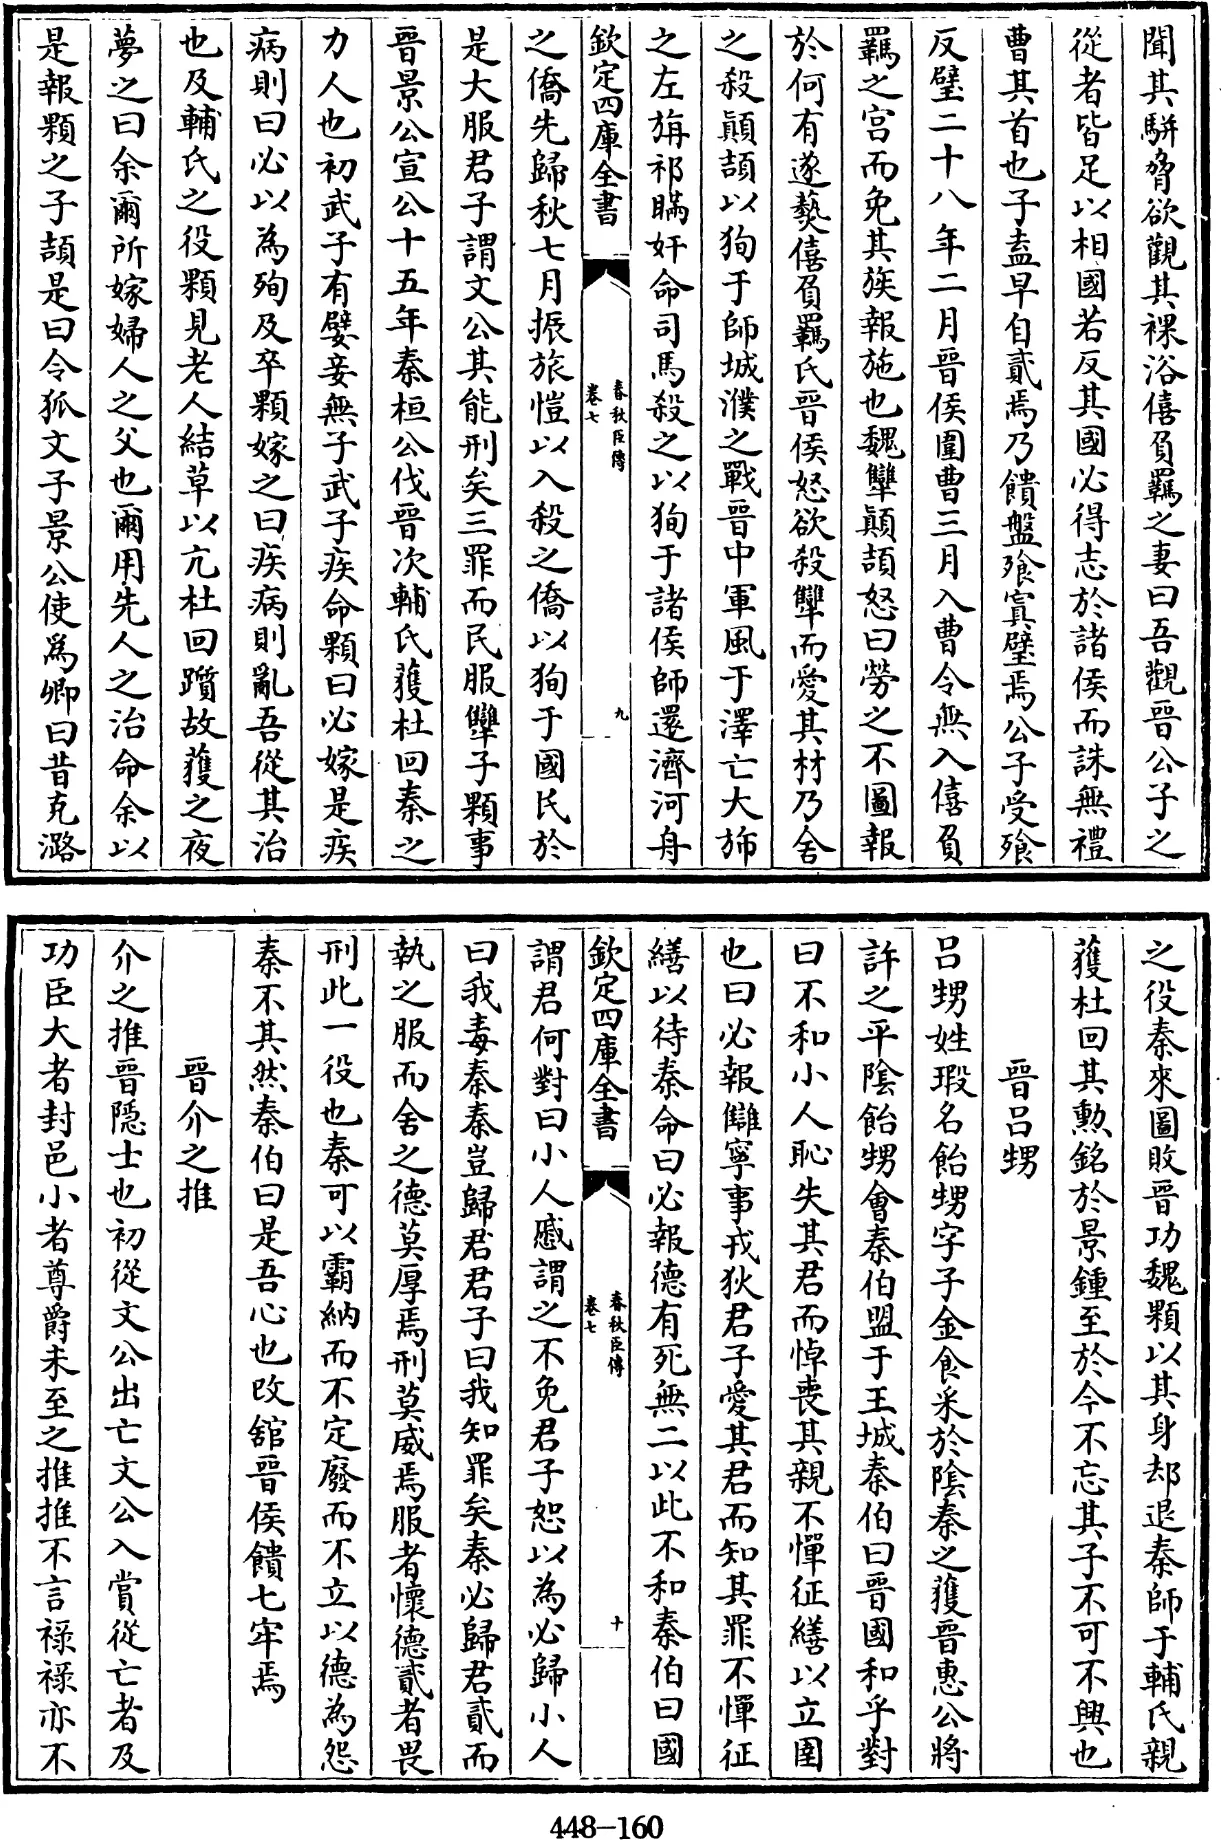 聞其駢脅欲觀其裸浴僖負羈之妻曰吾觀晉公子之
從者皆足以相國若反其國必得志於諸侯而誅無禮
曹其首也子盍早自貳焉乃饋盤飱寘璧焉公子受飱
反璧二十八年二月晉侯圍曹三月入曹令無入僖負
羈之宮而免其族報施也魏犫顛頡怒曰勞之不圖報
於何有遂爇僖負羈氏晉侯怒欲殺犫而愛其材乃舍
之殺顛頡以狥于師城濮之戰晉中軍風于澤亡大斾
之左旃祁瞞奸命司馬殺之以狥于諸侯師還濟河舟
欽定四庫全書
春秋臣傳
卷七
九
之僑先歸秋七月振旅愷以入殺之僑以狥于國民於
是大服君子謂文公其能刑矣三罪而民服犫子顆事
晉景公宣公十五年秦桓公伐晉次輔氏獲杜回秦之
力人也初武子有嬖妾無子武子疾命顆曰必嫁是疾
病則曰必以為殉及卒顆嫁之曰疾病則亂吾從其治
也及輔氏之役顆見老人結草以亢杜回躓故獲之夜
夢之曰余爾所嫁婦人之父也爾用先人之治命余以
是報顆之子頡是曰令狐文子景公使為卿曰昔克潞
之役秦來圖敗晉功魏顆以其身却退秦師于輔氏親
獲杜回其勲銘於景鍾至於今不忘其子不可不興也
晉呂甥
呂甥姓瑕名飴甥字子金食采於陰秦之獲晉惠公將
許之平陰飴甥會秦伯盟于王城秦伯曰晉國和乎對
曰不和小人恥失其君而悼喪其親不憚征繕以立圉
也曰必報讎寧事戎狄君子愛其君而知其罪不憚征
繕以待秦命曰必報德有死無二以此不和秦伯曰國
欽定四庫全書
春秋臣傳
卷七
十
謂君何對曰小人慼謂之不免君子恕以為必歸小人
曰我毒秦秦豈歸君君子曰我知罪矣秦必歸君貳而
執之服而舍之德莫厚焉刑莫威焉服者懷德貳者畏
刑此一役也秦可以霸納而不定廢而不立以德為怨
秦不其然秦伯曰是吾心也改舘晉侯饋七牢焉
晉介之推
介之推晉隠士也初從文公出亡文公入賞從亡者及
功臣大者封邑小者尊爵未至之推推不言祿祿亦不
448-160